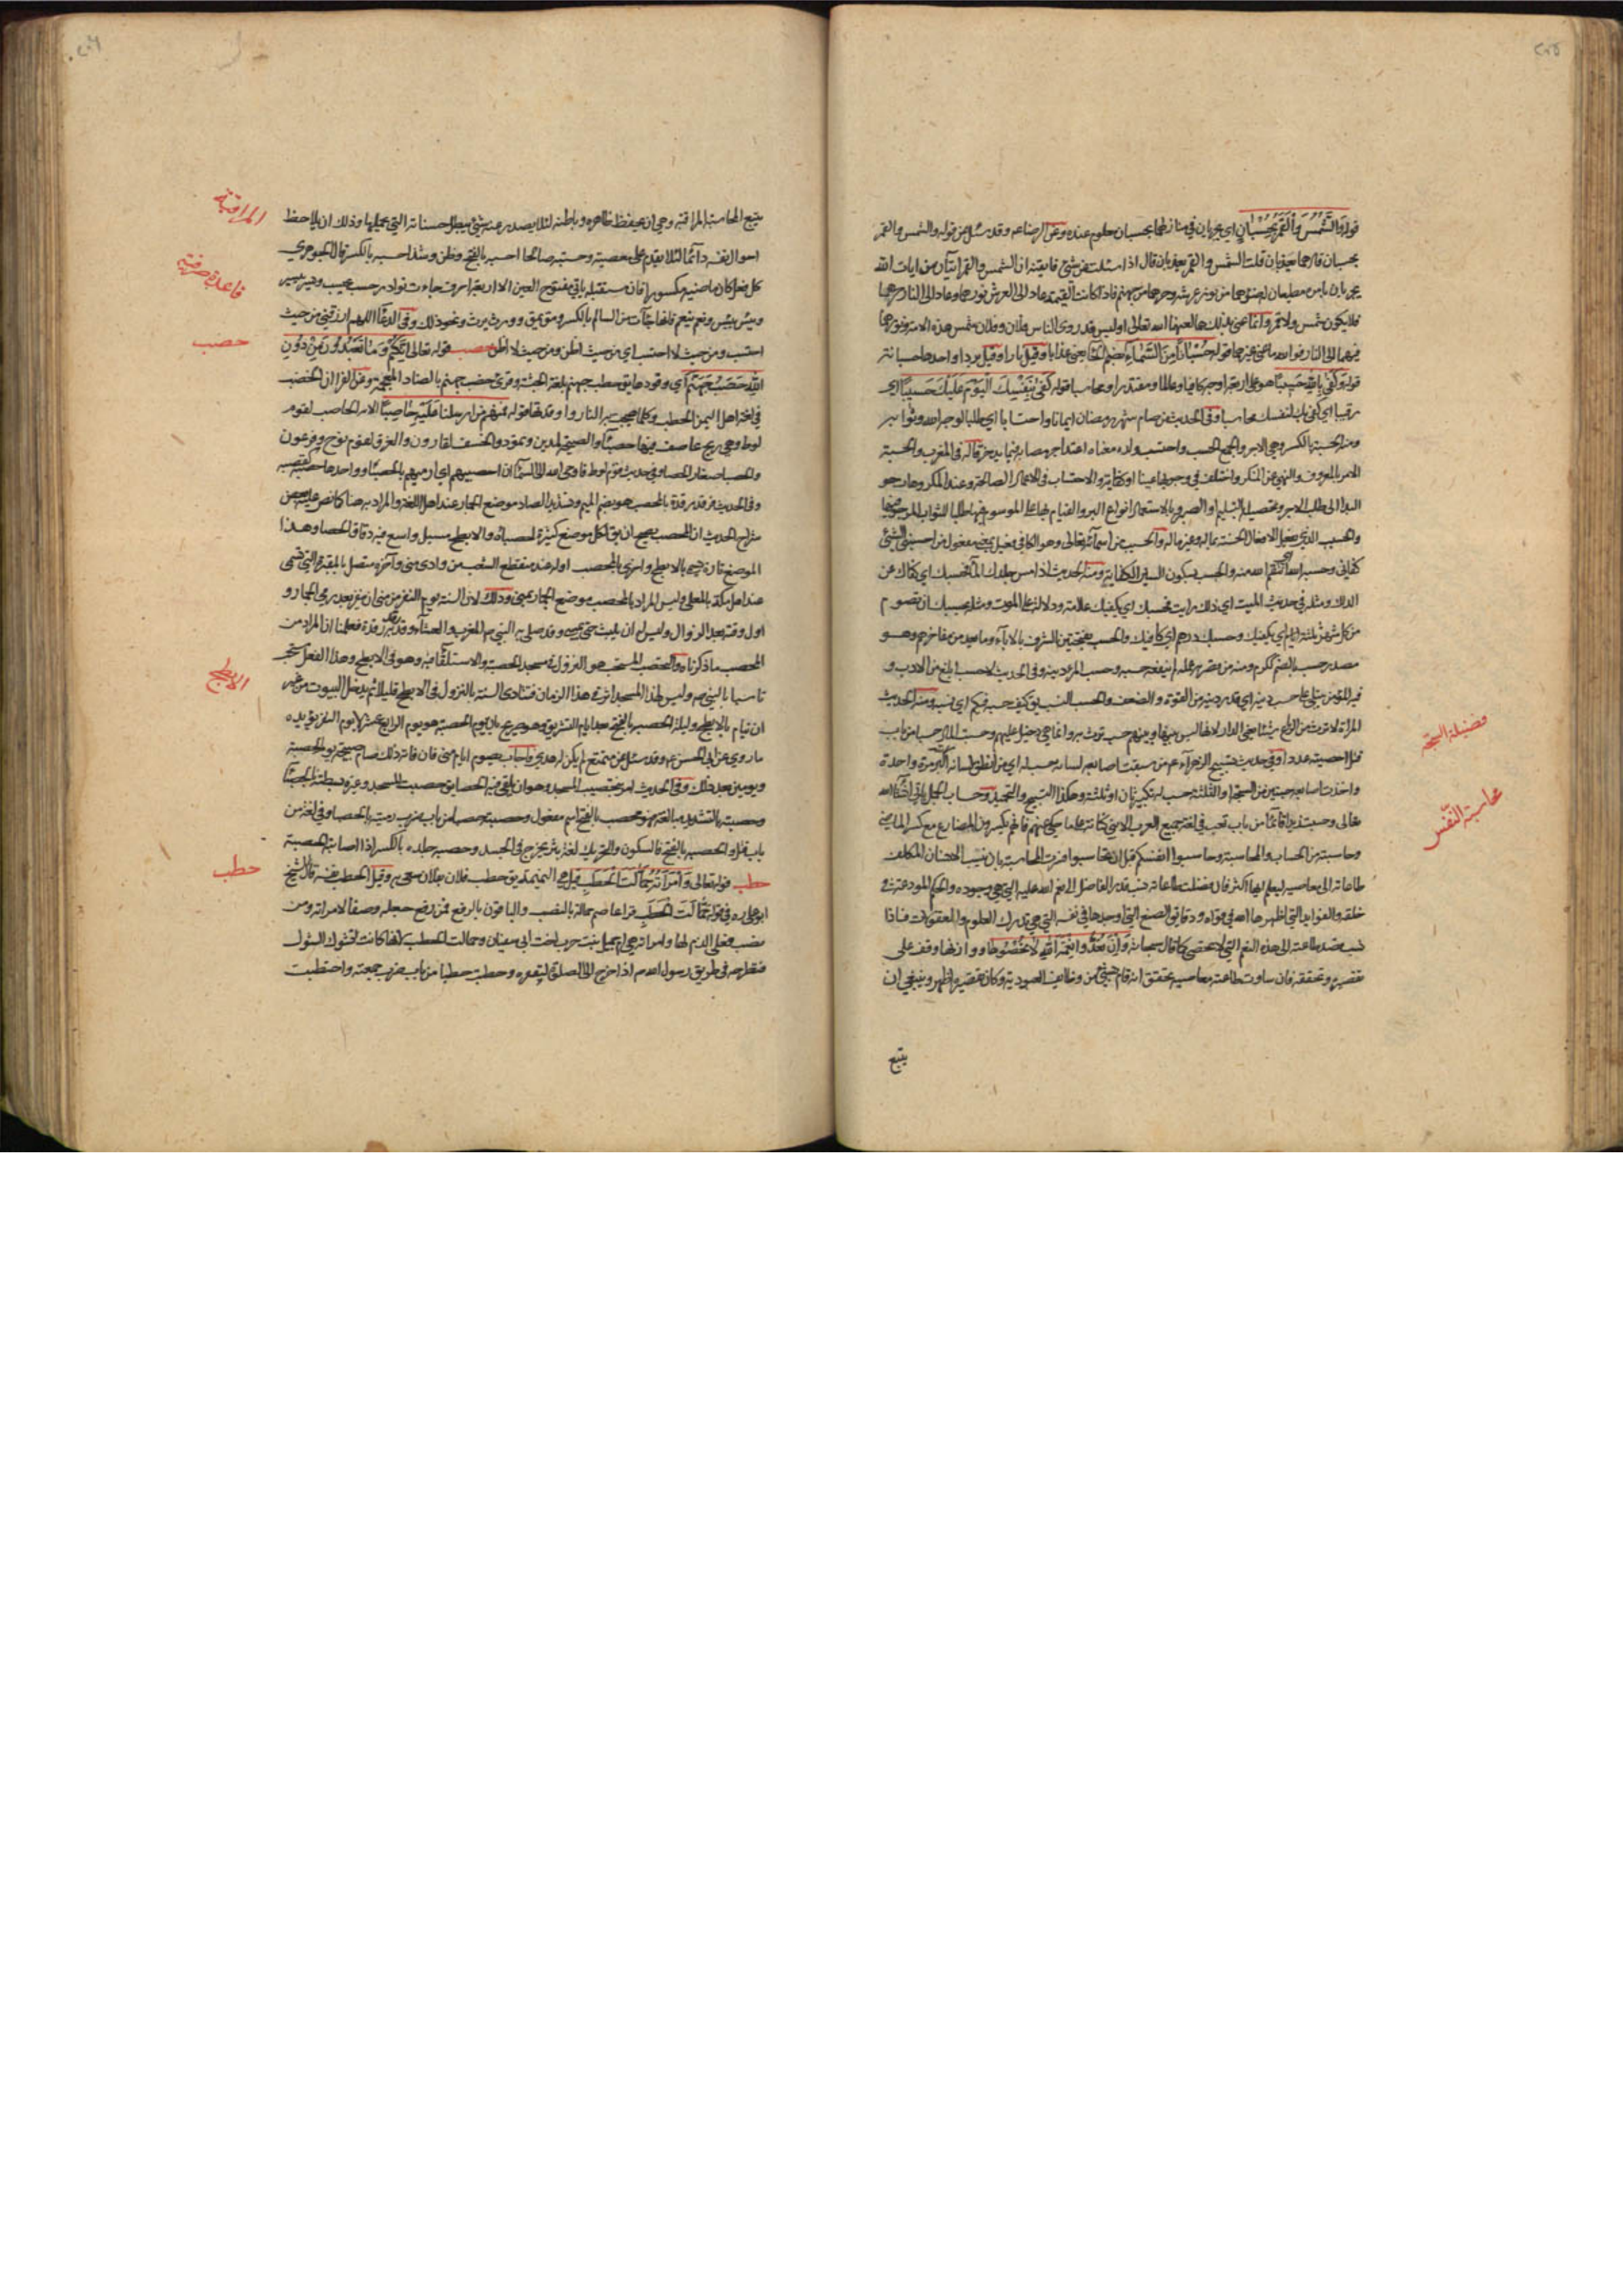 ٢٠٥
قوله وَالشَّمْسَ وَالْقَمَرَ بِحُسْبَانٍ اي يجريان في منازلهما بحسبان معلوم عنده وعن الرضا ع م وقد سئل عن قوله والشمس والقمر
بحسبان قال هما يعذبان قلت الشمس والقمر يعذبان قال اذا سئلت عن شئ فاتقنه ان الشمس والقمر ايتان من ايات الله
يجريان بامره مطيعان له ضوءهما من نور عرشه وحرهما من جهنم فاذا كانت القيمة عاد الى العرش نورهما وعاد الى النار حرهما
فلا يكون شمس ولا قمر وانما عنى بذلك هما لعنهما الله تعالى اوليس قد روى الناس فلان وفلان شمس هذه الامة ونورها
فهما في النار فو الله ما عنى غيرهما قوله حُسْبَانًا مِنَ السَّمَاءِ بضم الحاء يعني عذابا وقيل نارا وقيل بردا واحدها حسبانة
قوله وَكَفَى بِاللَّهِ حَسِيبًا هو على اربعة اوجه كافيا وعالما ومقتدرا ومحاسبا قوله كَفَى بِنَفْسِكَ الْيَوْمَ عَلَيْكَ حَسِيبًا اي
رقيبا اي كفى بك لنفسك محاسبا وفي الحديث من صام شهر رمضان ايمانا واحتسابا اي طلبا لوجه الله وثوابه
ومنه الحسبة بالكسر وهي الاجر والجمع الحسب واحتسب ولده معناه اعتد اجر مصابه فيما يدخر قاله في المغرب والحسبة
الامر بالمعروف والنهي عن المنكر واختلف في وجوبها عينا او كفاية والاحتساب في الاعمال الصالحة وعند المكروهات هو
البدار الى طلب الاجر وتحصيله بالتسليم او الصبر وباستعمال انواع البر والقيام بها على الموسوم فيها طلبا للثواب المرجو منها
والحسيب الذي يفعل الافعال الحسنة بماله وغير ماله والحسيب من اسمائه تعالى وهو الكافي فعيل بمعنى مفعول من احسبني الشئ
كفاني وحسبه الله اي انتقم الله منه والحسب بسكون السين الكفاية ومنه الحديث اذا مس جلدك الماء فحسبك اي كفاك عن
الدلك ومثله في حديث الميت اي ذلك رايت فحسبك اي يكفيك علامة ودلالة على الموت ومثله بحسبك ان تصوم
من كل شهر ثلثة ايام اي يكفيك وحسبك درهم اي كافيك والحسب بفتحتين الشرف بالاباء وما يعد من مفاخرهم وهو
مصدر حسب بالضم ككرم ومنه من قصر به عمله لم ينفعه حسبه وحسب المرء دينه وفي الحديث لا حسب ابلغ من الادب و
فيه المؤمن يبتلى على حسب دينه اي قدر دينه من القوة والضعف والحسب النسب يق كيف حسبه فيكم اي نسبه ومنه الحديث
قتل احصيته عددا وفي حديث تسبيح الزهراء ع م من سبقت اصابعه لسانه حسب له اي من انطق لسانه اكثر مرة واحدة
تعالى وحسبت زيدا قائما من باب تعب في لغة جميع العرب الا بني كنانة
وحاسبته من الحساب والمحاسبة وحاسبوا انفسكم قبل ان تحاسبوا فسرت المحاسبة بان ينسب الانسان المكلف
طاعاته الى معاصيه ليعلم ايها اكثر فان فضلت طاعاته نسب قدر الفاضل الى نعم الله عليه التي هي وجوده والحكم المودعة في
خلقه والفوايد التي اظهرها الله في قواه ودقايق الصنع التي اوجدها في نفسه التي هي تدرك العلوم والمعقولات فاذا
نسب فضل طاعته الى هذه النعم التي لا تحصى كما قال سبحانه وَإِنْ تَعُدُّوا نِعْمَةَ اللَّهِ لَا تُحْصُوهَا ووازنها وقف على
تقصيره وتحققه فان ساوت طاعته معاصيه تحقق انه قام بشئ من وظايف العبودية وكان تقصيره اظهر وينبغي ان
يتبع
فضيلة السبحة
محاسبة النفس
٢٠٦
يتبع المحاسبة المراقبة وهي ان يحفظ ظاهره وباطنه لئلا يصدر عنه شئ يبطل حسناته التي عملها وذلك ان يلاحظ
احوال نفسه دائما لئلا يقدم على معصية وحسبته صالحا احسبه بالفتح وظن وشذ احسبه بالكسر قال الجوهري
كل فعل كان ماضيه مكسورا فان مستقبله ياتي مفتوح العين الا اربعة احرف جاءت نوادر حسب يحسب ويبس ييبس
ويئس ييئس ونعم ينعم فانها جاءت من السالم بالكسر ومق يمق وورث يرث ونحو ذلك وفي الدعاء اللهم ارزقني من حيث
احتسب ومن حيث لا احتسب اي من حيث اظن ومن حيث لا اظن حصب قوله تعالى اِنَّكُمْ وَمَا تَعْبُدُونَ مِنْ دُونِ
اللَّهِ حَصَبُ جَهَنَّمَ اي وقودها يق حطب جهنم بلغة الحبشة وقرئ حضب جهنم بالضاد المعجمة وعن الفرا ان الحضب
في لغة اهل اليمن الحطب وكلما هيجت به النار واوقدتها قوله فمنهم من ارسلنا عَلَيْهِ حَاصِبًا الاية الحاصب لقوم
لوط وهي ريح عاصف فيها حصباء والصيحة لمدين وثمود والخسف لقارون والغرق لقوم نوح وفرعون
والحصبا صغار الحصا وفي حديث قوم لوط فاوحى الله الى السماء ان احصبيهم اي ارميهم بالحصباء وواحدها حصبة كقصبة
شراح الحديث ان المحصب يصح ان يق لكل موضع كثيرة حصباؤه والابطح مسيل واسع فيه دقاق الحصا وهذا
الموضع تارة يسمى بالابطح واخرى بالمحصب اوله عند منقطع الشعب من وادي منى واخره متصل بالمقبرة التي تسمى
عند اهل مكة بالمعلى وليس المراد بالمحصب موضع الجمار بمنى وذلك لان السنة يوم النفر من منى ان ينفر بعد رمي الجمار و
المحصب ما ذكرناه والتحصيب المستحب هو النزول في مسجد الحصبة والاستلقاء فيه وهو في الابطح وهذا الفعل مستحب
تاسيا بالنبي ص وليس لهذا المسجد اثر في هذا الزمان فتتادى السنة بالنزول في الابطح قليلا ثم يدخل البيوت من غير
ان ينام بالابطح وليلة الحصبة بالفتح بعد ايام التشريق وهو صريح بان يوم الحصبة هو يوم الرابع عشر لا يوم النفر يؤيده
ما روي عن ابي الحسن ع م وقد سئل عن متمتع لم يكن له هدي فاجاب يصوم ايام منى فان فاته ذلك صام صبيحة يوم الحصبة
ويومين بعد ذلك وفي الحديث امر بتحصيب المسجد وهو ان يلقى فيه الحصا يق حصبت المسجد وغيره بسطته بالحصباء
وحصبته بالتشديد مبالغة فهو محصب بالفتح اسم مفعول وحصبته حصبا من باب ضرب رميته بالحصبا وفي لغة من
باب قتل والحصبة بالفتح فالسكون والتحريك لغة بثر يخرج في الجسد وحصب جلده بالكسر اذا اصابته الحصبة
حطب قوله تعالى وَامْرَأَتُهُ حَمَّالَتَ الْحَطَبِ قيل هي النميمة يق حطب فلان بفلان سعى به وقيل الحطب نفسه قال الشيخ
ابو علي ره في قوله حَمَّالَتَ الْحَطَبِ قرا عاصم حمالة بالنصب والباقون بالرفع فمن رفع جعله وصفا لامراته ومن
نصب فعلى الذم لها وامراته هي ام جميل بنت حرب اخت ابي سفيان وحمالت الحطب لانها كانت تحمل الشوك
فتطرحه في طريق رسول الله ص اذا خرج الى الصلوة ليعقره وحطبت حطبا من باب ضرب جمعته واحتطبت
المراقبة
قاعدة صرفية
حصب
الابطح
حطب